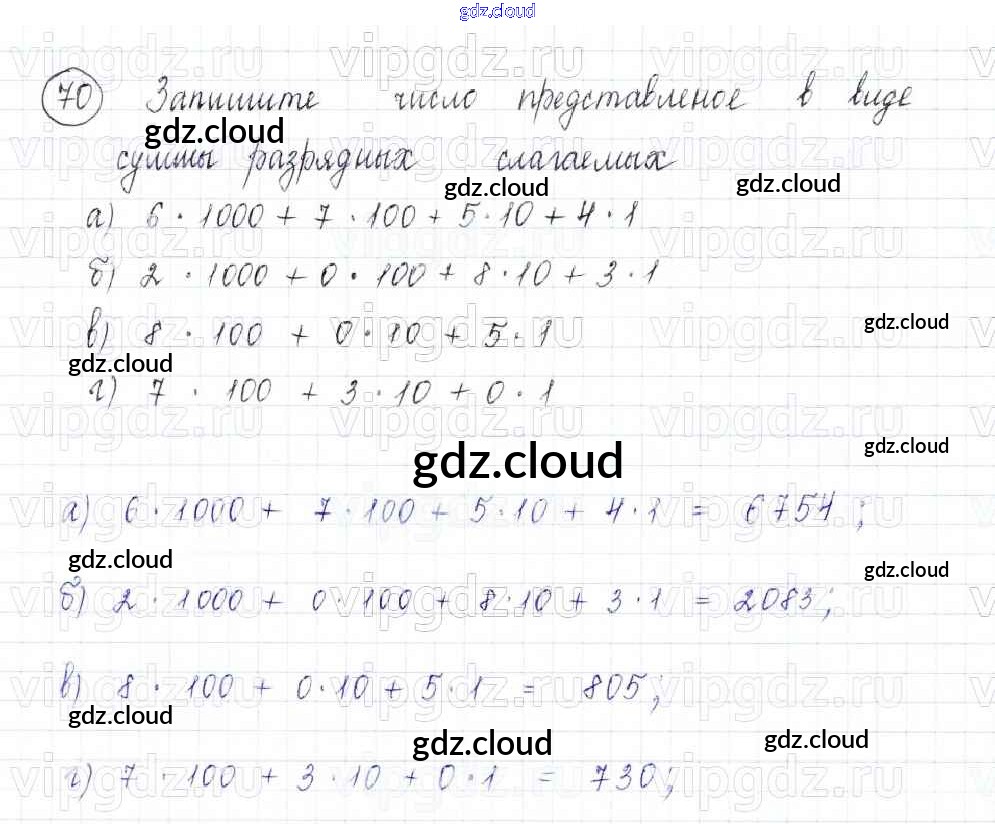 gdz.cloud
70 Запишите число представленое в виде
gdz.cloud
суммы разрядных слагаемых
gdz.cloud gdz.cloud
а) 6 · 1000 + 7 · 100 + 5 · 10 + 4 · 1
б) 2 · 1000 + 0 · 100 + 8 · 10 + 3 · 1
в) 8 · 100 + 0 · 10 + 5 · 1
gdz.cloud
gdz.cloud
г) 7 · 100 + 3 · 10 + 0 · 1
gdz.cloud
gdz.cloud
а) 6 · 1000 + 7 · 100 + 5 · 10 + 4 · 1 = 6754;
gdz.cloud
gdz.cloud
б) 2 · 1000 + 0 · 100 + 8 · 10 + 3 · 1 = 2083;
в) 8 · 100 + 0 · 10 + 5 · 1 = 805;
gdz.cloud
gdz.cloud gdz.cloud
г) 7 · 100 + 3 · 10 + 0 · 1 = 730;